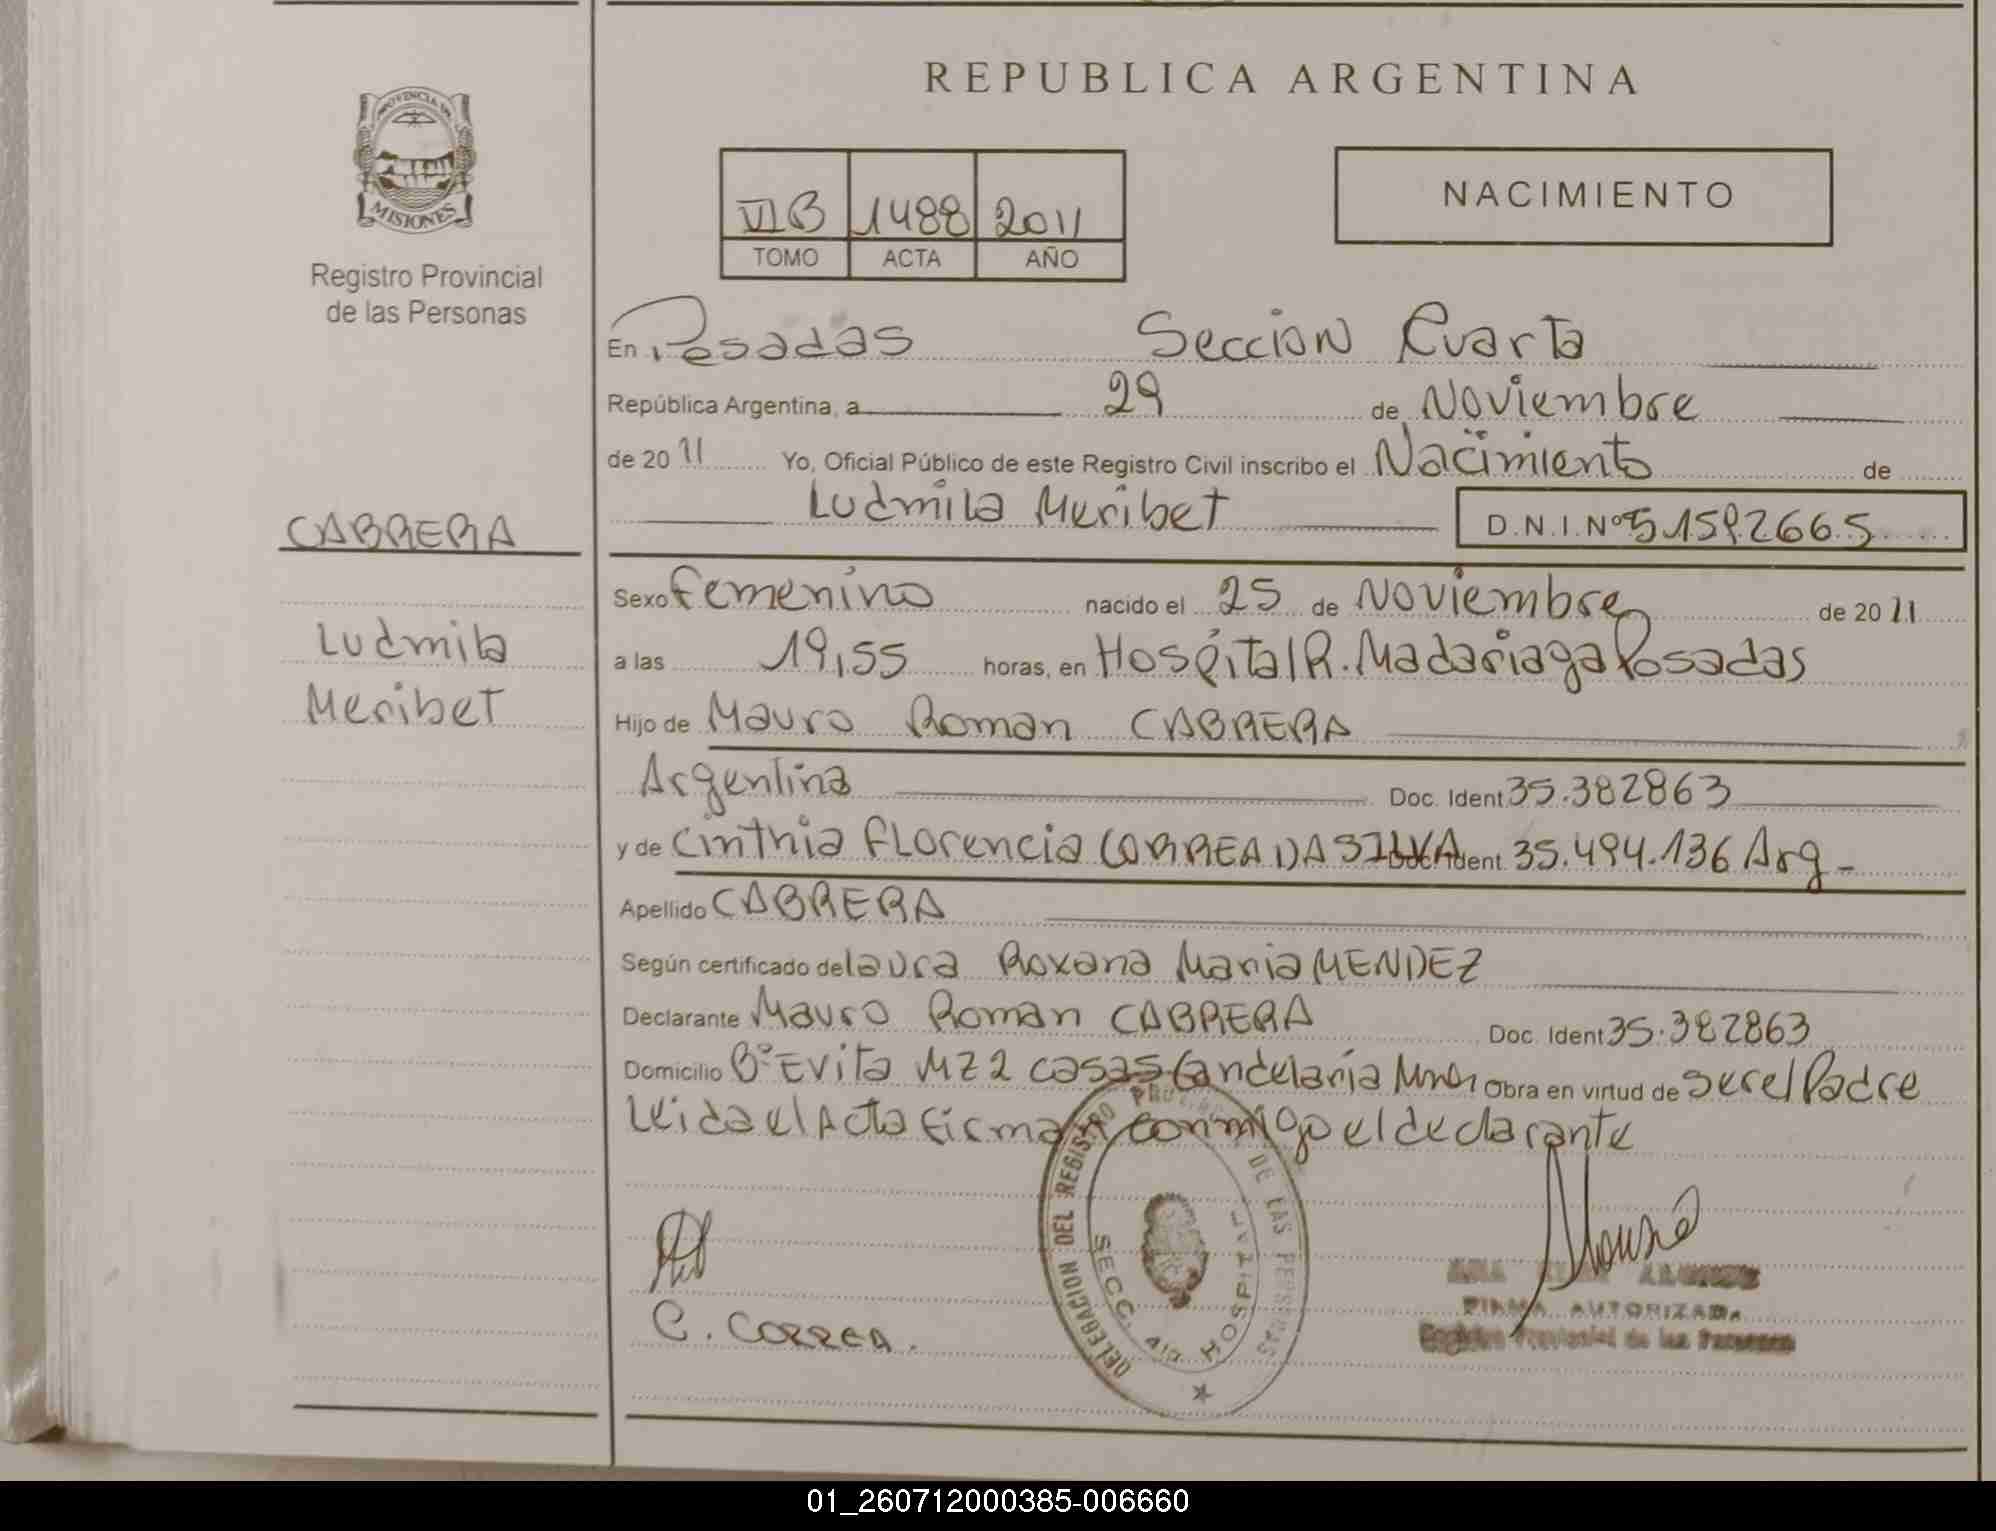 REPUBLICA ARGENTINA
PROVINCIA DE
MISIONES
Registro Provincial
de las Personas
VIB 1488 2011
TOMO ACTA AÑO
NACIMIENTO
En Posadas Seccion Cuarta
República Argentina, a 29 de Noviembre
de 2011 Yo, Oficial Público de este Registro Civil inscribo el Nacimiento de
Ludmila Meribet D.N.I.Nº 51.592665
CABRERA
Ludmila
Meribet
Sexo Femenino nacido el 25 de Noviembre de 2011
a las 19,55 horas, en Hospital R. Madariaga Posadas
Hijo de Mauro Roman CABRERA
Argentina Doc. Ident 35.382863
y de Cinthia Florencia CORREA DA SILVA Doc. Ident. 35.494.136 Arg-
Apellido CABRERA
Según certificado de laura Roxana Maria MENDEZ
Declarante Mauro Roman CABRERA Doc. Ident 35.382863
Domicilio Bº Evita MZ 2 casa 5 Candelaria Mnes Obra en virtud de ser el Padre
leida el Acta firman conmigo el declarante
DELEGACION DEL REGISTRO PROVINCIAL DE LAS PERSONAS
SECC. 4ta HOSPITAL
C. CORREA.
FIRMA AUTORIZADA
Registro Provincial de las Personas
01_260712000385-006660